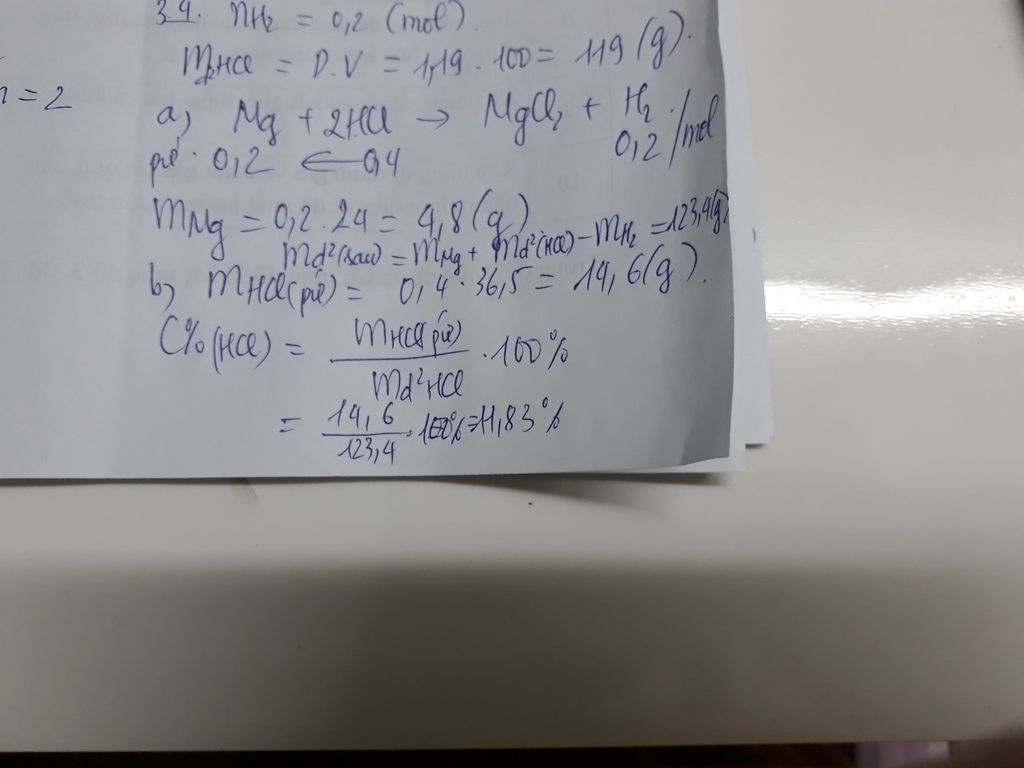 n = 2
3.4. nH₂ = 0,2 (mol).
mHCl = D.V = 1,19 . 100 = 119 (g).
a, Mg + 2HCl → MgCl₂ + H₂.
pứ: 0,2 ← 0,4 0,2 /mol
mMg = 0,2 . 24 = 4,8 (g)
md²(sau) = mMg + md²(HCl) - mH₂ = 123,4(g)
b, mHCl(pứ) = 0,4 . 36,5 = 14,6(g).
C%(HCl) = mHCl(pứ) / md²HCl . 100%
= 14,6 / 123,4 . 100% = 11,83%